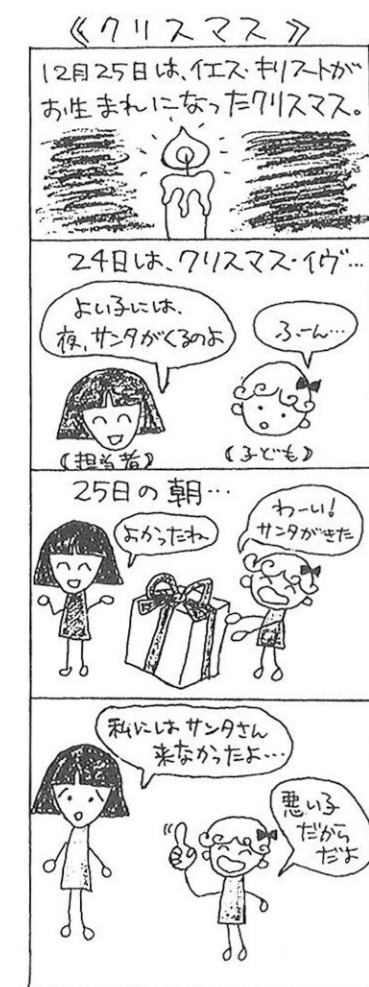 《クリスマス》
12月25日は、イエス・キリストが
お生まれになったクリスマス。
24日は、クリスマス・イヴ…
よい子には、
夜、サンタがくるのよ
ふーん…
(担当者)
(子ども)
25日の朝…
よかったね
わーい!
サンタがきた
私にはサンタさん
来なかったよ…
悪い子
だから
だよ